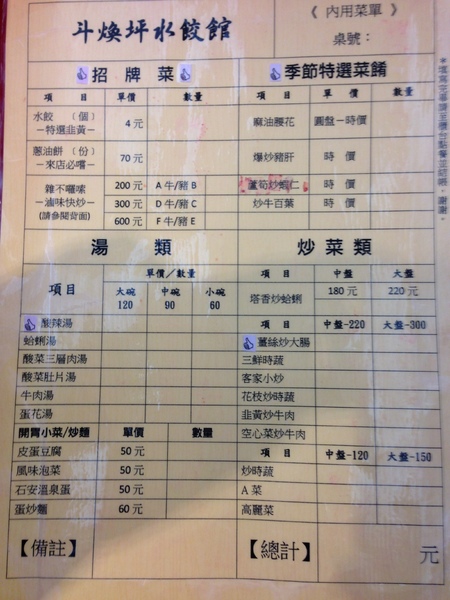 斗煥坪水餃館
《 內用菜單 》
桌號：
招牌菜
項 目 單價 數量
水餃 （個）
－特選韭黃－
4 元
蔥油餅 （份）
－來店必嚐－
70 元
雜不囉嗦
－滷味快炒－
(請參閱背面)
200 元 A 牛/豬 B
300 元 D 牛/豬 C
600 元 F 牛/豬 E
季節特選菜餚
項 目 單 價 數量
麻油腰花 圓盤－時價
爆炒豬肝 時 價
蘆筍炒蝦仁 時 價
炒牛百葉 時 價
湯 類
項目 單價／數量
大碗 中碗 小碗
120 90 60
酸辣湯
蛤蜊湯
酸菜三層肉湯
酸菜肚片湯
牛肉湯
蛋花湯
開胃小菜/炒麵 單價 數量
皮蛋豆腐 50 元
風味泡菜 50 元
石安溫泉蛋 50 元
蛋炒麵 60 元
炒菜類
項 目 中盤 大盤
塔香炒蛤蜊 180 元 220 元
項 目 中盤-220 大盤-300
薑絲炒大腸
三鮮時蔬
客家小炒
花枝炒時蔬
韭黃炒牛肉
空心菜炒牛肉
項 目 中盤-120 大盤-150
炒時蔬
A 菜
高麗菜
【備註】
【總計】 元
＊填寫完畢請至櫃台點餐並結帳，謝謝。